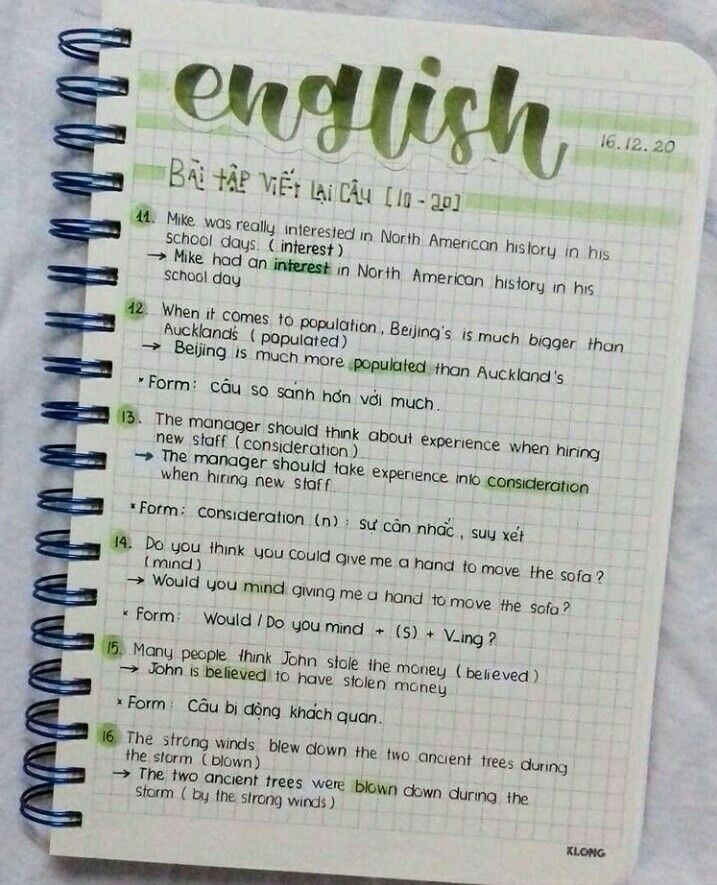 english
16.12.20
BÀI TẬP VIẾT LẠI CÂU [10 - 20]
11. Mike was really interested in North American history in his
school days. (interest)
→ Mike had an interest in North American history in his
school day
12. When it comes to population, Beijing's is much bigger than
Auckland's (populated)
→ Beijing is much more populated than Auckland's
* Form: câu so sánh hơn với much.
13. The manager should think about experience when hiring
new staff (consideration)
→ The manager should take experience into consideration
when hiring new staff
* Form: consideration (n): sự cân nhắc, suy xét
14. Do you think you could give me a hand to move the sofa?
(mind)
→ Would you mind giving me a hand to move the sofa?
* Form: Would / Do you mind + (s) + V_ing?
15. Many people think John stole the money (believed)
→ John is believed to have stolen money
* Form: Câu bị động khách quan.
16 The strong winds blew down the two ancient trees during
the storm (blown)
→ The two ancient trees were blown down during the
storm (by the strong winds)
KLONG